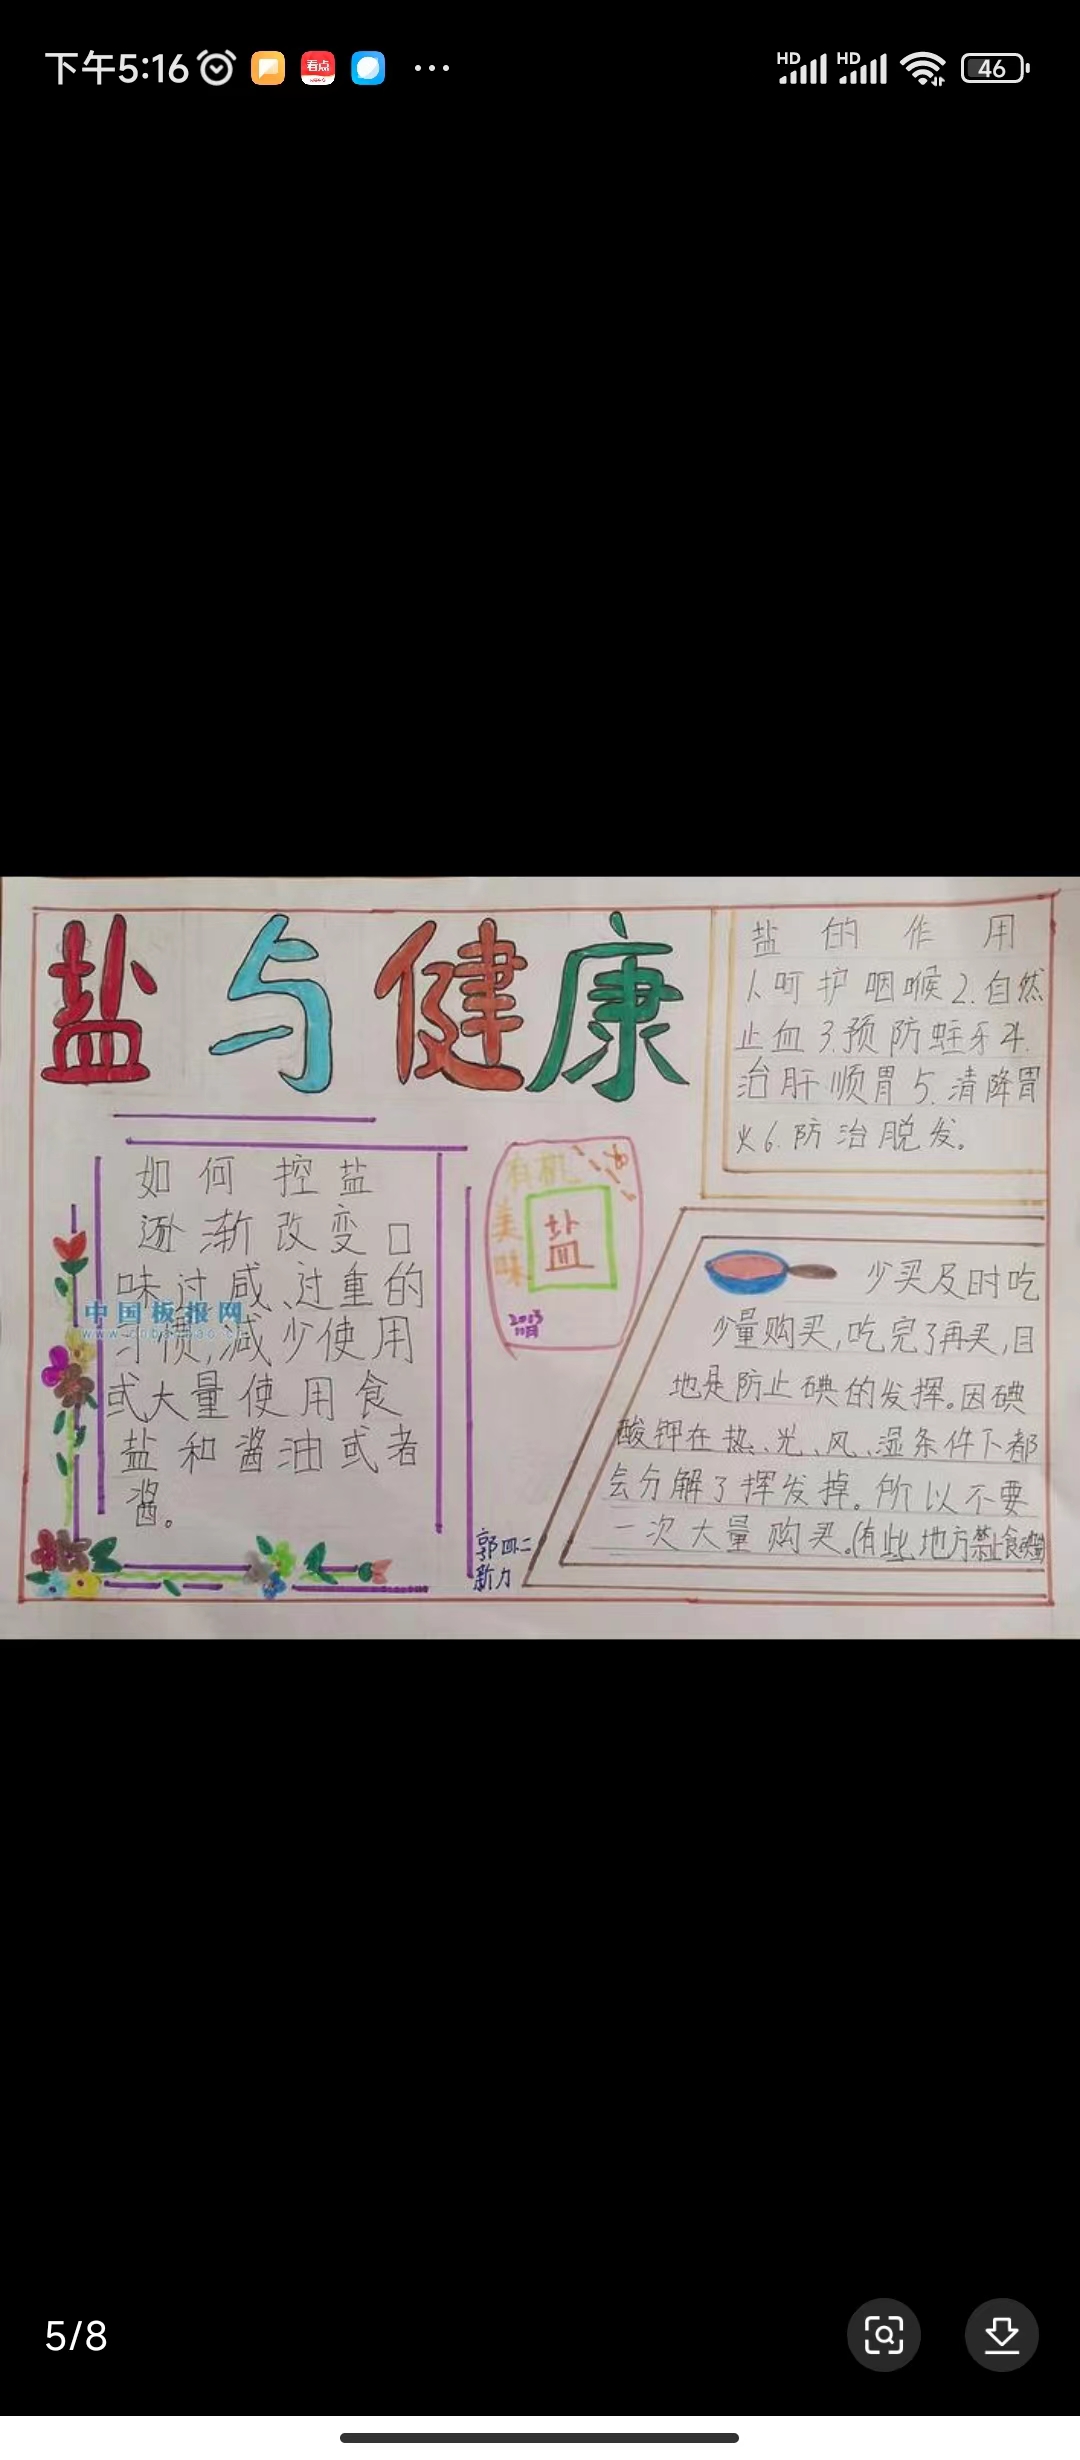 下午5:16
看点
HD
HD
46
盐与健康
盐的作用
1.呵护咽喉2.自然
止血3.预防蛀牙4.
治肝顺胃5.清降胃
火6.防治脱发。
如何控盐
逐渐改变口
味过咸、过重的
习惯,减少使用
或大量使用食
盐和酱油或者
酱。
中国板报网
有机
美味
盐
11月
少买及时吃
少量购买,吃完了再买,目
地是防止碘的发挥。因碘
酸钾在热、光、风、湿条件下都
会分解了挥发掉。所以不要
一次大量购买。(有些地方禁止食
郭四二
新力
5/8